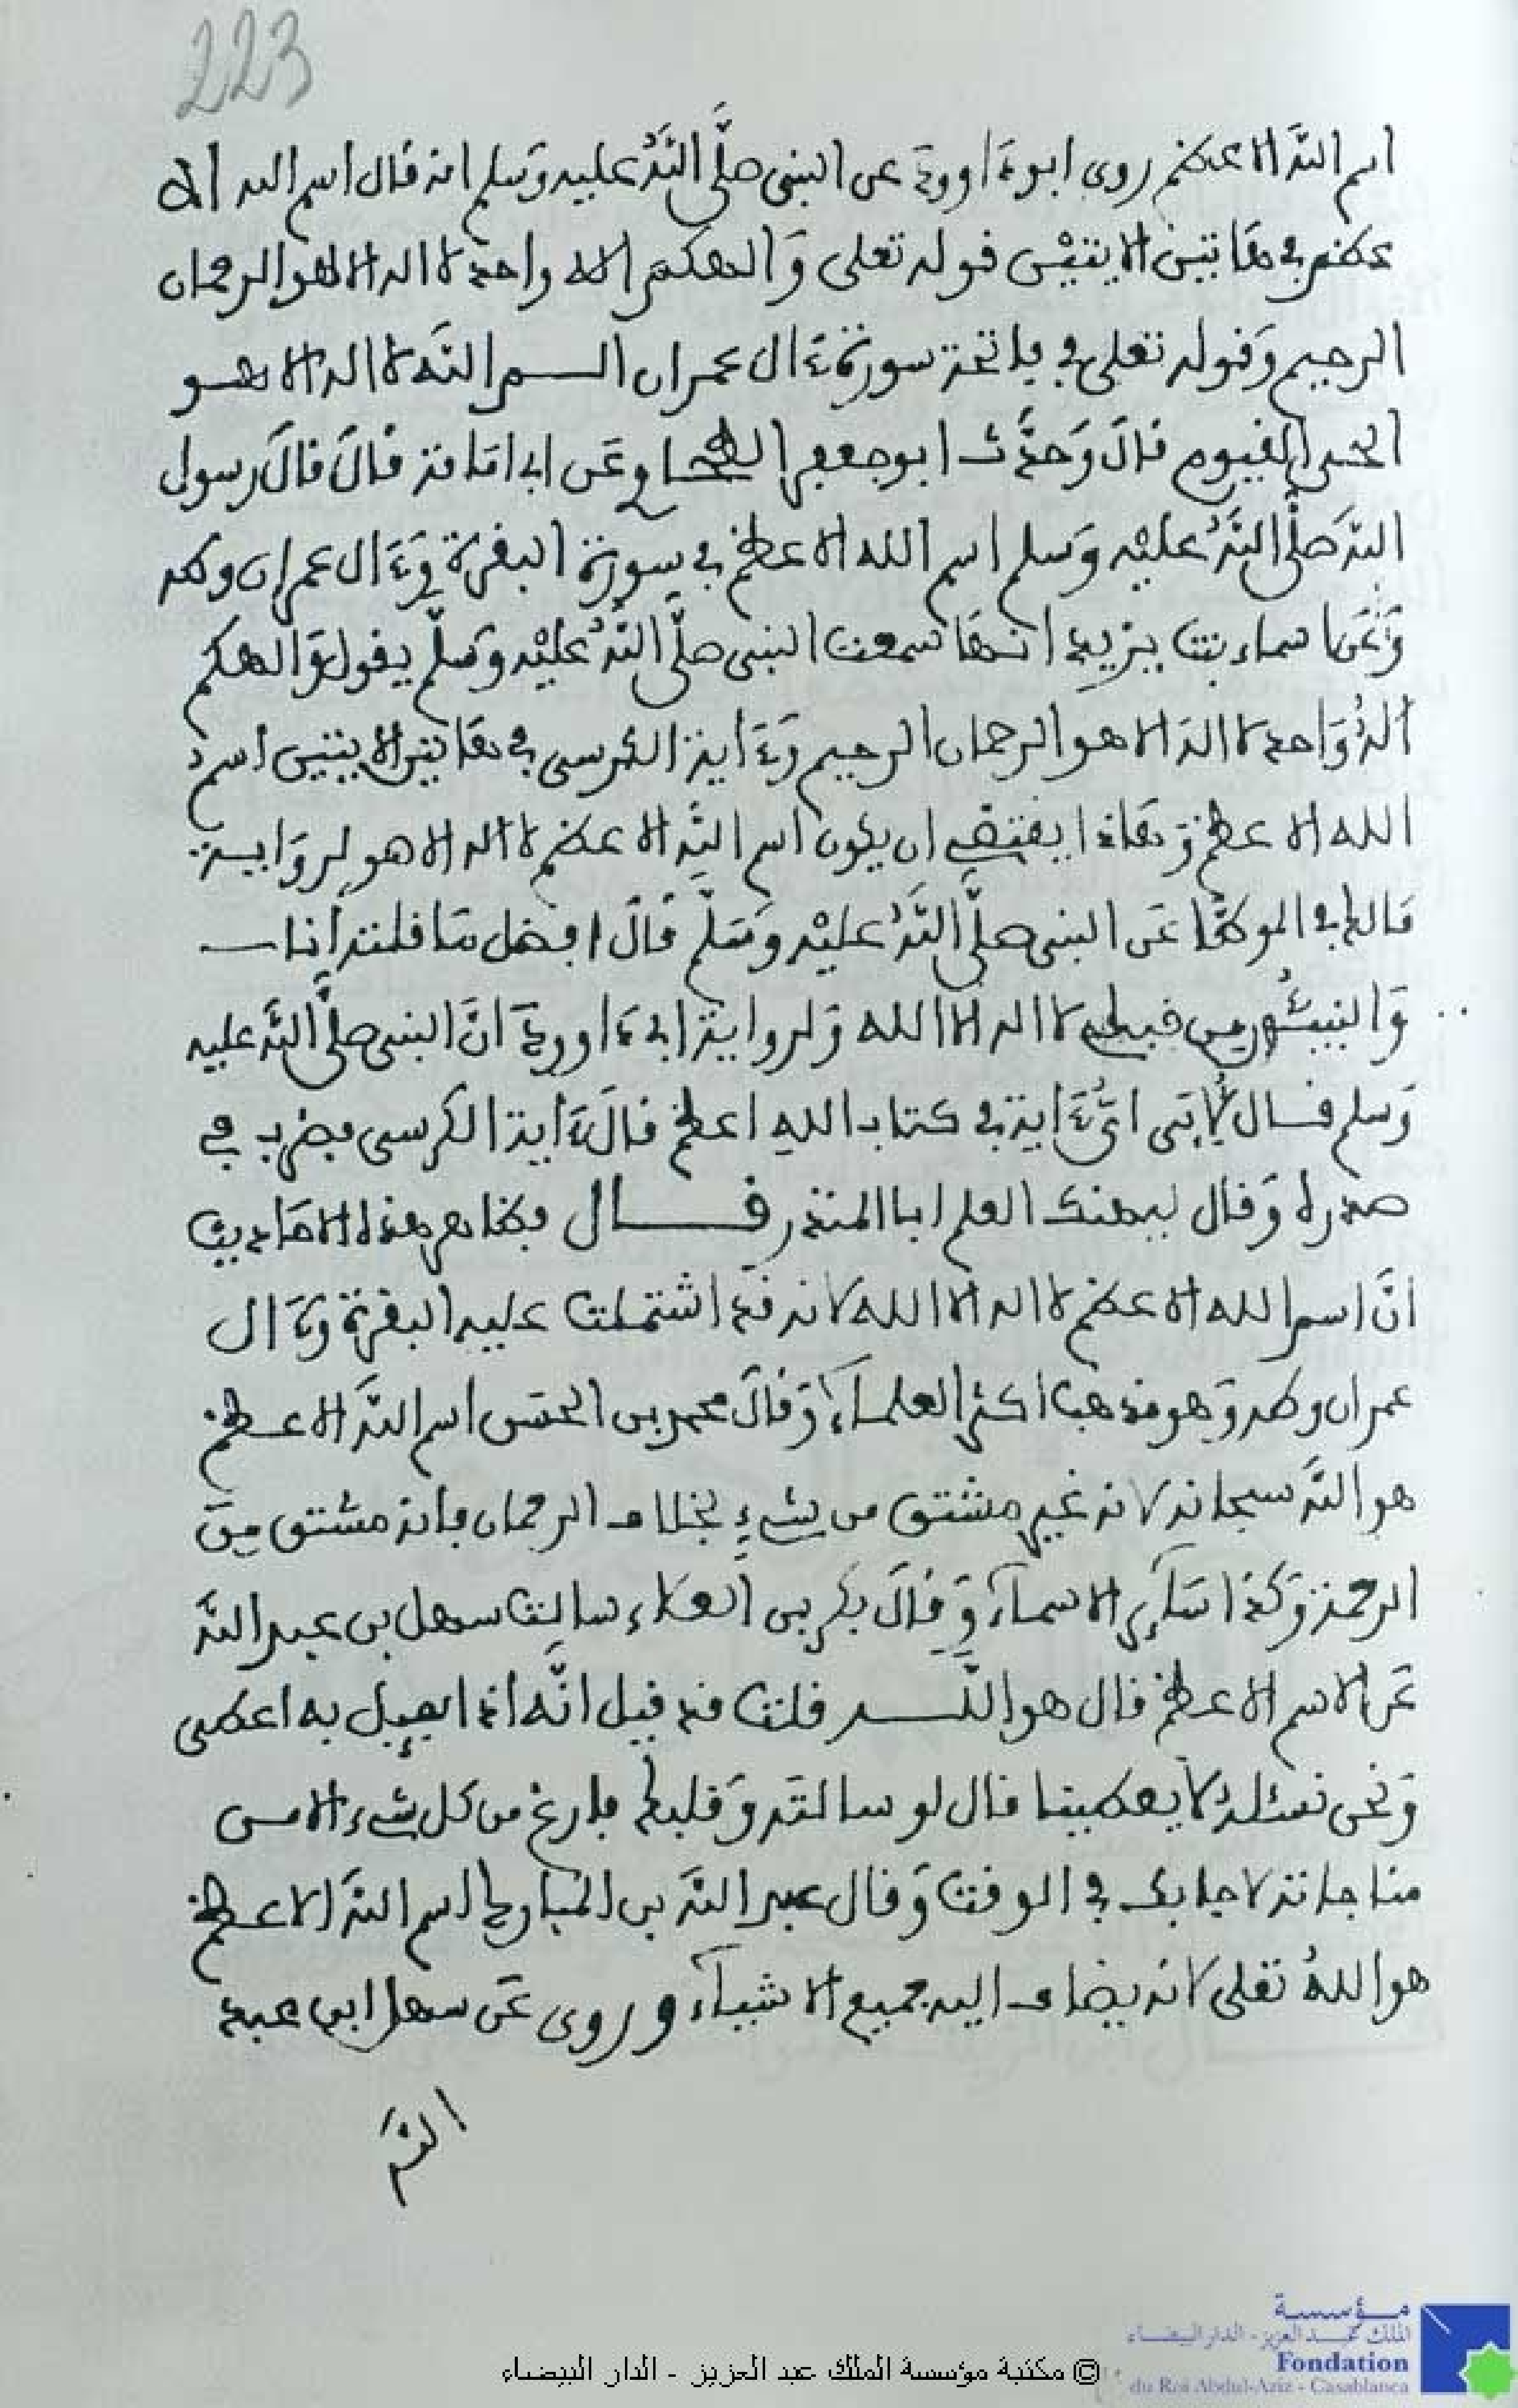 223
اسم الله الاعظم روى ابو داوود عن النبي صلَّى اللهُ عليه وسلم انه قال اسم الله الا
عظم في هاتين الايتين قوله تعلى وَالهكم اله واحد لا اله الا هو الرحمان
الرحيم وَقوله تعلى في فاتحة سورة ءال عمران الــم الله لا اله الا هــو
الحي القيوم قالَ وَحدَّث ابو جعفر الطحاوي عَن ابي امامة قالَ قالَ رسول
الله صلَّى اللهُ عليْه وسلم اسم الله الاعظم في سورة البقرة وَءال عمران وطه
وَعَن اسماء بنت يزيد انها سمعت النبي صلَّى اللهُ عليْه وَسلَّم يقول وَالهكم
الهُ وَاحد لا اله الا هو الرحمان الرحيم وَءاية الكرسي في هاتين الايتين اسم
الله الاعظم وَهاذا يقتضي ان يكون اسم الله الاعظم لا اله الا هو لروَايــة
مالك في الموطَّا عَن النبي صلَّى اللهُ عليْه وَسَلَّم قالَ افضل مَا قلته انا
وَالنبيئُون من قبلي لا اله الا الله وَلرواية ابي داوود انَّ النبي صلَّى الله عليه
وَسلم قــال لأبي ايُّ ءاية في كتاب اللهِ اعظم قالَ ءاية الكرسي فضرب في
صدره وَقال ليهنك العلم ابا المنذر قــــال فظاهر هذه الاحَاديث
انَّ اسم الله الاعظم لا اله الا الله لانه قد اشتملت عليه البقرة وَءال
عمران وطه وَهو مذهب اكثر العلمــآء وَقالَ محمد بن الحسَن اسم اللهَ الاعــظم
هو الله سبحانه لانه غير مشتق من شيءٍ بخلاف الرحمان فانه مشتق مِنَ
الرحمة وَكذا سَآئر الاسمآء وَقالَ بكر بن العلاء سالت سهل بن عبد الله
عَن الاسم الاعظم قال هو اللــه قلت قد قيل انَّه اذا سِيل به اعطى
وَنحن نسئلهُ لا يعطينا قال لو سالتَه وَقلبك فارغ من كل شيء الا من
مناجاته لاجابك في الوقت وَقال عبد الله بن المبارك اسم الله الاعــظم
هو اللهُ تعلى لانه يضاف اليه جميع الاشيآء وروى عَن سهل ابن عبد
الله
© مكتبة مؤسسة الملك عبد العزيز - الدار البيضاء
مؤسسة
الملك عبد العزيز - الدار البيضاء
Fondation
du Roi Abdul-Aziz - Casablanca